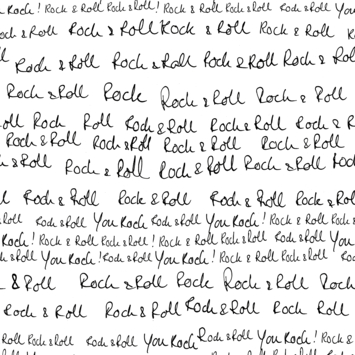 Rock! Rock & Roll Rock & Roll! Rock & Roll Rock & Roll Rock & Roll You
Rock & Roll Rock & Roll Rock & Roll Rock & Roll
Rock & Roll Rock & Roll Rock & Roll Rock & Rol
Rock & Roll Rock Rock & Roll Rock & Roll
oll Rock Roll Rock & Roll Rock & Roll Rock & R
Rock & Roll Rock & Roll Rock & Roll Rock & Roll
& Roll Rock & Roll Rock & Roll Rock & Roll Roc
Rock & Roll Rock & Roll Rock & Roll Rock & Rol
& Roll Rock & Roll You Rock Rock & Roll You Rock! Rock & Roll Rock &
Rock! Rock & Roll Rock & Roll! Rock & Roll Rock & Roll Rock & Roll You
& Roll You Rock! Rock & Roll You Rock! Rock & Roll Rock & Roll
& Roll Rock & Roll Rock Rock & Roll Rock
Rock & Roll Rock & Roll Rock & Roll Rock Roll
Roll Rock & Roll Rock & Roll You Rock Rock & Roll You Rock! Rock &